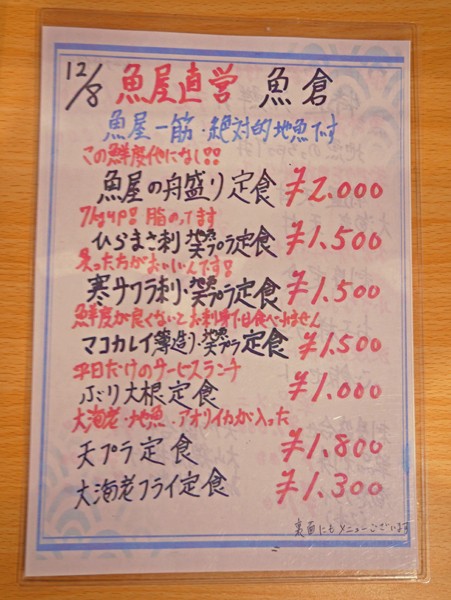 12/8 魚屋直営 魚倉
魚屋一筋・絶対的地魚です
この鮮度他になし!!
魚屋の舟盛り定食 ¥2.000
7kgUP!! 脂のってます
ひらまさ刺・地魚天プラ定食 ¥1.500
炙った方がおいしいんです!
寒サワラ刺・地魚天プラ定食 ¥1.500
鮮度が良くないとお刺身では食べれません
マコカレイ薄造り・地魚天プラ定食 ¥1.500
平日だけのサービスランチ
ぶり大根定食 ¥1.000
大海老・地魚・アオリイカが入った
天プラ定食 ¥1.800
大海老フライ定食 ¥1.300
裏面にもメニューございます